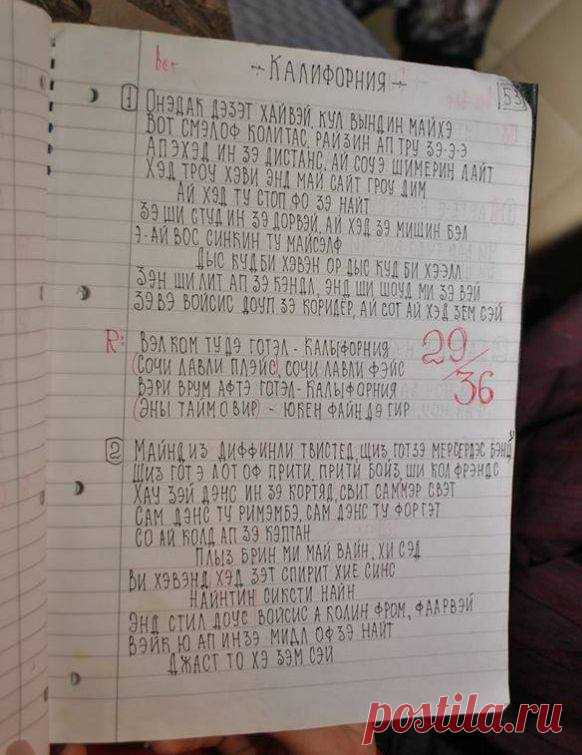 ber
→ КАЛИФОРНИЯ →
53
1 ОНЭДАК ДЭЗЭТ ХАЙВЭЙ, КУЛ ВЫНДИН МАЙХЭ
ВОТ СМЭЛОФ КОЛИТАС, РАЙЗИН АП ТРУ ЗЭ-Э-Э
АПЭХЭД ИН ЗЭ ДИСТАНС, АЙ СОУЭ ШИМЕРИН ЛАЙТ
ХЭД ГРОУ ХЭВИ ЭНД МАЙ САЙТ ГРОУ ДИМ
АЙ ХЭД ТУ СТОП ФО ЗЭ НАЙТ
ЗЭ ШИ СТУД ИН ЗЭ ДОРВЭЙ, АЙ ХЭД ЗЭ МИШИН БЭЛ
Э-АЙ ВОС СИНКИН ТУ МАЙСЭЛФ
ДЫС КУД БИ ХЭВЭН ОР ДЫС КУД БИ ХЭЭЛЛ
ЗЭН ШИ ЛИТ АП ЗЭ КЭНДЛ, ЭНД ШИ ШОУД МИ ЗЭ ВЭЙ
ЗЭВЭ ВОЙСИС ДОУП ЗЭ КОРИДЕР, АЙ СОТ АЙ ХЭД ЗЕМ СЭЙ
R: ВЭЛКОМ ТУ ДЭ ГОТЭЛ - КАЛЫФОРНИЯ
(СОЧИ ЛАВЛИ ПЛЭЙС), СОЧИ ЛАВЛИ ФЭЙС
ВЭРИ ВРУМ АФТЭ ГОТЭЛ - КАЛЫФОРНИЯ
(ЭНЫ ТАЙМ О ВИР) - ЮКЕН ФАЙН ДЭ ГИР
29/36
2 МАЙНД ИЗ ДИФФИНЛИ ТВИСТЕД, ЩИЗ ГОТ ЗЭ МЕРСЕРДЭС БЭНД
ЩИЗ ГОТ Э ЛОТ ОФ ПРИТИ, ПРИТИ БОЙЗ, ШИ КОЛ ФРЭНДС
ХАУ ЗЭЙ ДЭНС ИН ЗЭ КОРТЯД, СВИТ САММЭР СВЭТ
САМ ДЭНС ТУ РИМЭМБЭ, САМ ДЭНС ТУ ФОРГЭТ
СО АЙ КОЛД АП ЗЭ КЭПТАН
ПЛЫЗ БРИН МИ МАЙ ВАЙН, ХИ СЭД
ВИ ХЭВЭНД, ХЭД ЗЭТ СПИРИТ ХИЕ СИНС
НАЙНТИН СИКСТИ НАЙН
ЭНД СТИЛ ДОУС ВОЙСИС А КОЛИН ФРОМ, ФААРВЭЙ
ВЭЙК Ю АП ИН ЗЭ МИДЛ ОФ ЗЭ НАЙТ
ДЖАСТ ТО ХЭ ЗЭМ СЭЙ
postila.ru